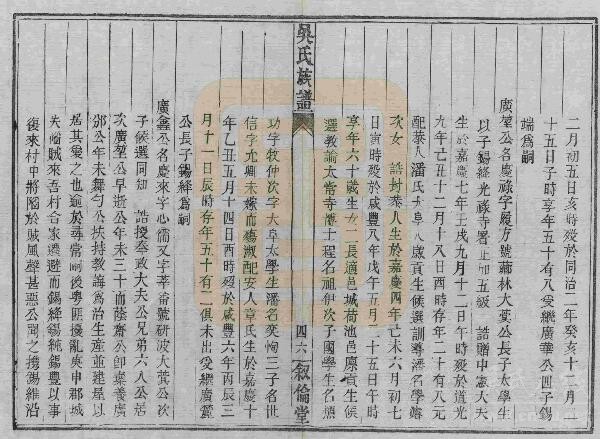 二月初五日亥時歿於同治二年癸亥十二月二
十五日子時享年五十有八爰繼廣華公四子錫
端為嗣
廣堃公名慶祿字履方號蘭林大蓃公長子太學生
以子錫綍光祿寺署正加五級 誥贈中憲大夫
生於嘉慶七年壬戌九月十二日午時歿於道光
九年己丑十二月十八日酉時存年二十有八元
配恭人潘氏大阜八歲貢生候選訓導潘名學
次女 誥封恭人生於嘉慶四年己未六月初七
日寅時歿於咸豐八年戊午五月二十五日午時
享年六十歲生女一長適邑城荷池邑廩貢生候
選教諭太常寺博士程名祖伊次子國學生名
功字牧仲次字大阜太學生潘名奕恂三子名世
信字允卿未嫁而殤淑配安人章氏生於嘉慶十
年乙丑五月十四日酉時歿於咸豐六年丙辰三
月十一日辰時存年五十有二俱未出爰繼廣
公長子錫綍為嗣
廣鑫公名慶來字心儒又字莘畬號研波大蓃公次
子候選同知 誥授奉政大夫公兄弟六人公居
次廣堃公早逝公年未三十而蔭齋公卽棄養廣
公年未舞勺公扶持教誨為治生產並建屋以
居其愛之也逾於尋常嗣後粵匪擾亂吳中郡城
失陷賊來吾村合家遷避而錫綍錫純錫豐以事
後來村中將陷於賊風聲甚惡公聞之攜錫維沿
吳氏族譜
四六
敘倫堂